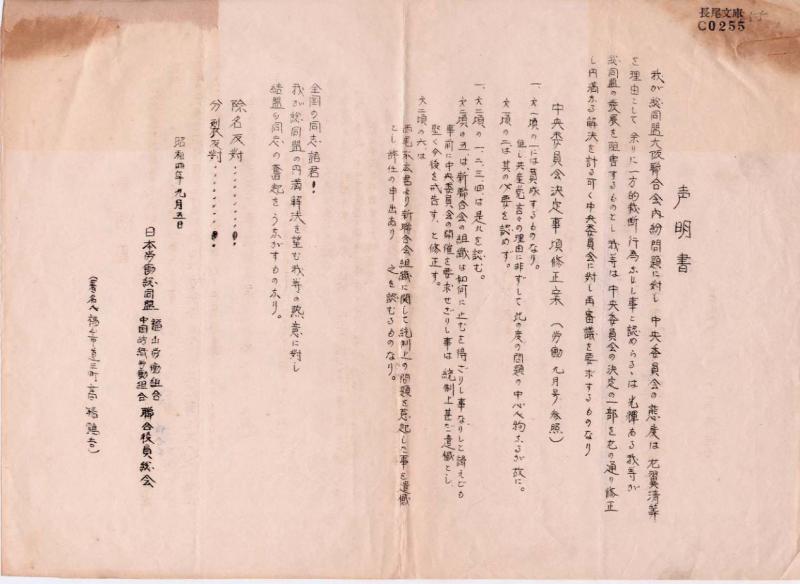 長尾文庫
C0255
声明書
我が総同盟大阪聯合会内紛問題に対し 中央委員会の態度は 左翼清算
を理由として 余りに一方的裁断行為なりし事と認めらるゝは光輝ある我等が
総同盟の発展を阻害するものとし我等は中央委員会の決定の一部を左の通り修正
し円満なる解決を計る可く中央委員会に対し再審議を要求するものなり
中央委員会決定事項修正案 (労働九月号参照)
一、大一項の一には賛成するものなり。
但し共産党云々の理由に非ずして此の度の問題の中心人物なるが故に。
大一項の二は其の必要を認めず。
一、大二項の一、二、三、四は是れを認む。
大二項の五は新聯合会の組織は如何に止むを得ざりし事なりしと謂えども
事前に中央委員会の開催を要求せざりし事は統制上甚だ遺憾とし
堅く今後を戒告す、と修正す。
大二項の六は
西尾末広君より新聯合会組織に関して統制上の問題を惹起した事を遺憾
とし辞任の申出あり 之を認むるものなり。
全国の同志諸君!
我が総同盟の円満解決を望む我等の熱意に対し
結盟の同志の奮起をうながすものなり。
除名反対‥‥‥!
分裂反対‥‥‥!
昭和四年九月五日
日本労働総同盟 福山労働組合
中国紡織労働組合 聯合役員総会
(署名人 福山市道三町 高橋